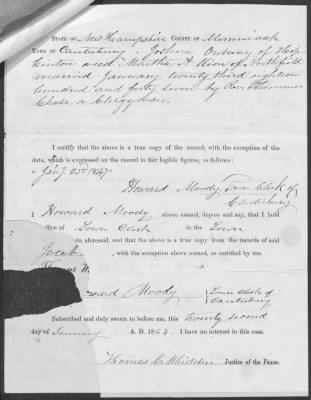 STATE OF New Hampshire COUNTY OF Merrimack
TOWN OF Canterbury, Joshua Ordway of Hop
kinton and Martha A. of Northfield
married January twenty third eighteen
hundred and forty seven by Rev Plummer
Chase a Clergyman.
I certify that the above is a true copy of the record, with the exception of the
date, which is expressed on the record in fair legible figures, as follows:
"Jan'y 23d 1847"
Howard Moody Town Clerk of
Canterbury
I Howard Moody above named, depose and say, that I hold
office of Town Clerk in the Town
ate aforesaid, and that the above is a true copy from the records of said
, with the exception above named, as certified by me.
Howard Moody Town Clerk of
Canterbury
Subscribed and duly sworn to before me, this twenty second
day of January A. D. 1863. I have no interest in this case.
Thomas Whidden Justice of the Peace.